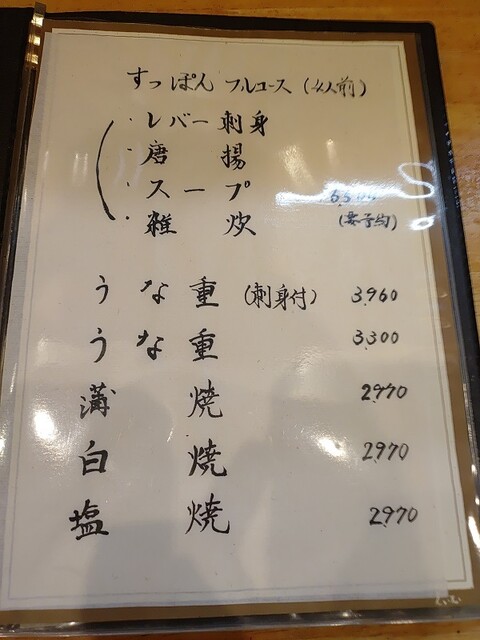 すっぽん フルコース (4人前)
・レバー刺身
・唐揚
・スープ
・雑炊
(要予約)
うな重 (刺身付) 3,960
うな重 3,300
蒲焼 2,970
白焼 2,970
塩焼 2,970